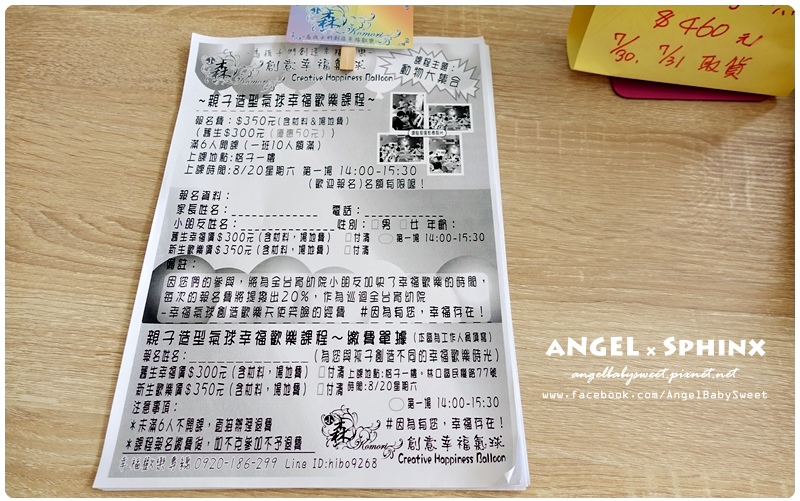 $460元
7/30. 7/31 取貨
森
Komori
~為孩子們創造幸福歡樂~
為孩子們創造幸福歡樂
創意幸福氣球
Creative Happiness Balloon
課程主題:
動物大集合
~親子造型氣球幸福歡樂課程~
報名費:$350元(含材料&場地費)
(舊生$300元(優惠50元))
滿6人開課(一班10人額滿)
上課地點:格子一樓
上課時間:8/20星期六 第一場 14:00-15:30
(歡迎報名)名額有限喔!
報名資料:
家長姓名:______________ 電話:______________
小朋友姓名:______________ 性別:□男 □女 年齡:
舊生幸福價$300元(含材料,場地費) □付清 ○第一場 14:00-15:30
新生歡樂價$350元(含材料,場地費) □付清
備註:
因您們的參與,將為全台育幼院小朋友加快了幸福歡樂的時間,
每次的報名費將提撥出20%,作為巡迴全台育幼院
-幸福氣球創造歡樂天使笑臉的經費 #因為有您,幸福存在!
親子造型氣球幸福歡樂課程~繳費單據(本區為工作人員填寫)
報名姓名:______________(為您與孩子創造不同的幸福歡樂時光)
舊生幸福價$300元(含材料,場地費) □付清 上課地點:格子一樓。林口區民權路77號
新生歡樂價$350元(含材料,場地費) □付清 時間:8/20星期六
注意事項: ○第一場 14:00-15:30
*未滿6人不開課,直接辦理退費 #因為有您,幸福存在!
*課程報名繳費後,如不克參加不予退費
森 Komori 創意幸福氣球
Creative Happiness Balloon
幸福歡樂專線 0920-186-299 Line ID:hibo9268
ANGEL x SPHINX
angelbabysweet.pixnet.net
www.facebook.com/AngelBabySweet